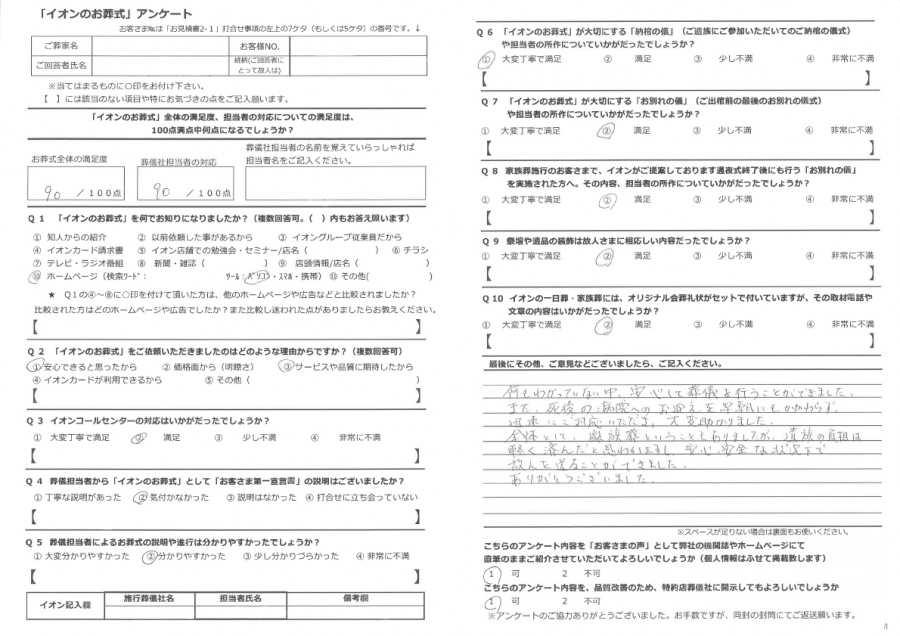 「イオンのお葬式」アンケート
お客さま№は「お見積書2-1」打合せ事項の左上の7ケタ（もしくは5ケタ）の番号です。↓
ご葬家名　お客様NO.
ご回答者氏名　続柄(ご回答者にとって故人は)
※当てはまるものに○印をお付け下さい。
【　】には該当のない項目や特にお気づきの点をご記入願います。
「イオンのお葬式」全体の満足度、担当者の対応についての満足度は、
100点満点中何点になるでしょうか？
お葬式全体の満足度　葬儀社担当者の対応　葬儀社担当者の名前を覚えていらっしゃれば
担当者名をご記入ください。
90 / 100点　90 / 100点
Q１　「イオンのお葬式」を何でお知りになりましたか？（複数回答可。(　) 内もお答え願います）
① 知人からの紹介　② 以前依頼した事があるから　③ イオングループ従業員だから
④ イオンカード請求書　⑤ イオン店舗での勉強会・セミナー/店名（　）⑥ チラシ
⑦ テレビ・ラジオ番組　⑧ 新聞・雑誌（　）⑨ 店頭情報/店名（　）
⑩ ホームページ（検索ﾜｰﾄﾞ：　ﾂｰﾙ：パソコン・ｽﾏﾎ・携帯）⑪ その他(　)
★ Q１の④～⑧に○印を付けて頂いた方は、他のホームページや広告などと比較されましたか？
比較された方はどのホームページや広告でしたか？また比較し迷われた点がありましたらお教えください。
【　】
Q２　「イオンのお葬式」をご依頼いただきましたのはどのような理由からですか？（複数回答可）
①安心できると思ったから　② 価格面から（明瞭さ）　③サービスや品質に期待したから
④ イオンカードが利用できるから　⑤ その他（　）
【　】
Q３ イオンコールセンターの対応はいかがだったでしょうか？
① 大変丁寧で満足　② 満足　③ 少し不満　④ 非常に不満
【　】
Q４ 葬儀担当者から「イオンのお葬式」として「お客さま第一宣言書」の説明はございましたか？
① 丁寧な説明があった　② 気付かなかった　③ 説明はなかった　④ 打合せに立ち会っていない
【　】
Q５ 葬儀担当者によるお葬式の説明や進行は分かりやすかったでしょうか？
① 大変分かりやすかった　②分かりやすかった　③ 少し分かりづらかった　④ 非常に不満
【　】
イオン記入欄　施行葬儀社名　担当者氏名　備考欄
Q６ 「イオンのお葬式」が大切にする「納棺の儀」（ご遺族にご参加いただいてのご納棺の儀式）
や担当者の所作についていかがだったでしょうか？
① 大変丁寧で満足　② 満足　③ 少し不満　④ 非常に不満
【　】
Q７ 「イオンのお葬式」が大切にする「お別れの儀」（ご出棺前の最後のお別れの儀式）
や担当者の所作についていかがだったでしょうか？
① 大変丁寧で満足　② 満足　③ 少し不満　④ 非常に不満
【　】
Q８ 家族葬施行のお客さまで、イオンがご提案しております通夜式終了後にも行う「お別れの儀」
を実施された方へ。その内容、担当者の所作についていかがだったでしょうか？
① 大変丁寧で満足　② 満足　③ 少し不満　④ 非常に不満
【　】
Q９ 祭壇や遺品の装飾は故人さまに相応しい内容だったでしょうか？
① 大変丁寧で満足　② 満足　③ 少し不満　④ 非常に不満
【　】
Q10 イオンの一日葬・家族葬には、オリジナル会葬礼状がセットで付いていますが、その取材電話や
文章の内容はいかがだったでしょうか？
① 大変丁寧で満足　② 満足　③ 少し不満　④ 非常に不満
【　】
最後にその他、ご意見などございましたら、ご記入ください。
何もわかっていない中、安心して葬儀を行うことができました。
また、死後の病院へのお迎えを早朝にもかかわらず、
迅速にご対応いただき、大変助かりました。
全体として、家族葬ということもありましたが、遺族の負担は
軽く済んだと思われますし、安心、安全な状況下で
故人を送ることができました。
ありがとうございました。
※スペースが足りない場合は裏面もお使いください。
こちらのアンケート内容を「お客さまの声」として弊社の機関誌やホームページにて
直筆のままご紹介させていただいてよろしいでしょうか（個人情報はふせて掲載致します）
1 可　2 不可
こちらのアンケート内容を、品質改善のため、特約店葬儀社に開示してもよろしいでしょうか
1 可　2 不可
※アンケートのご協力ありがとうございました。お手数ですが、同封の封筒にてご返送願います。